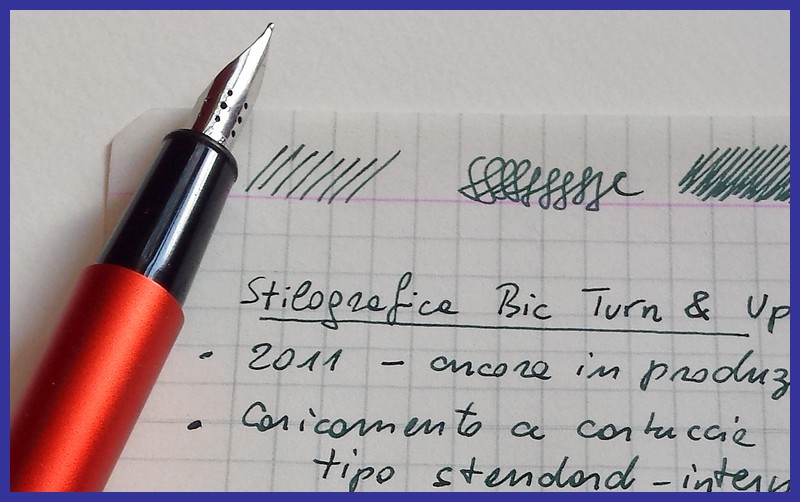 Stilografica Bic Turn & Up
• 2011 – ancora in produz
• Caricamento a cartuccie
tipo standard – intern